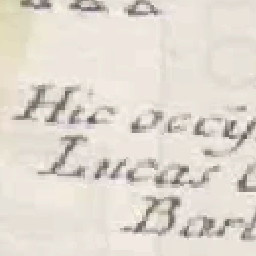 Hic occÿ
Lucas
Bar